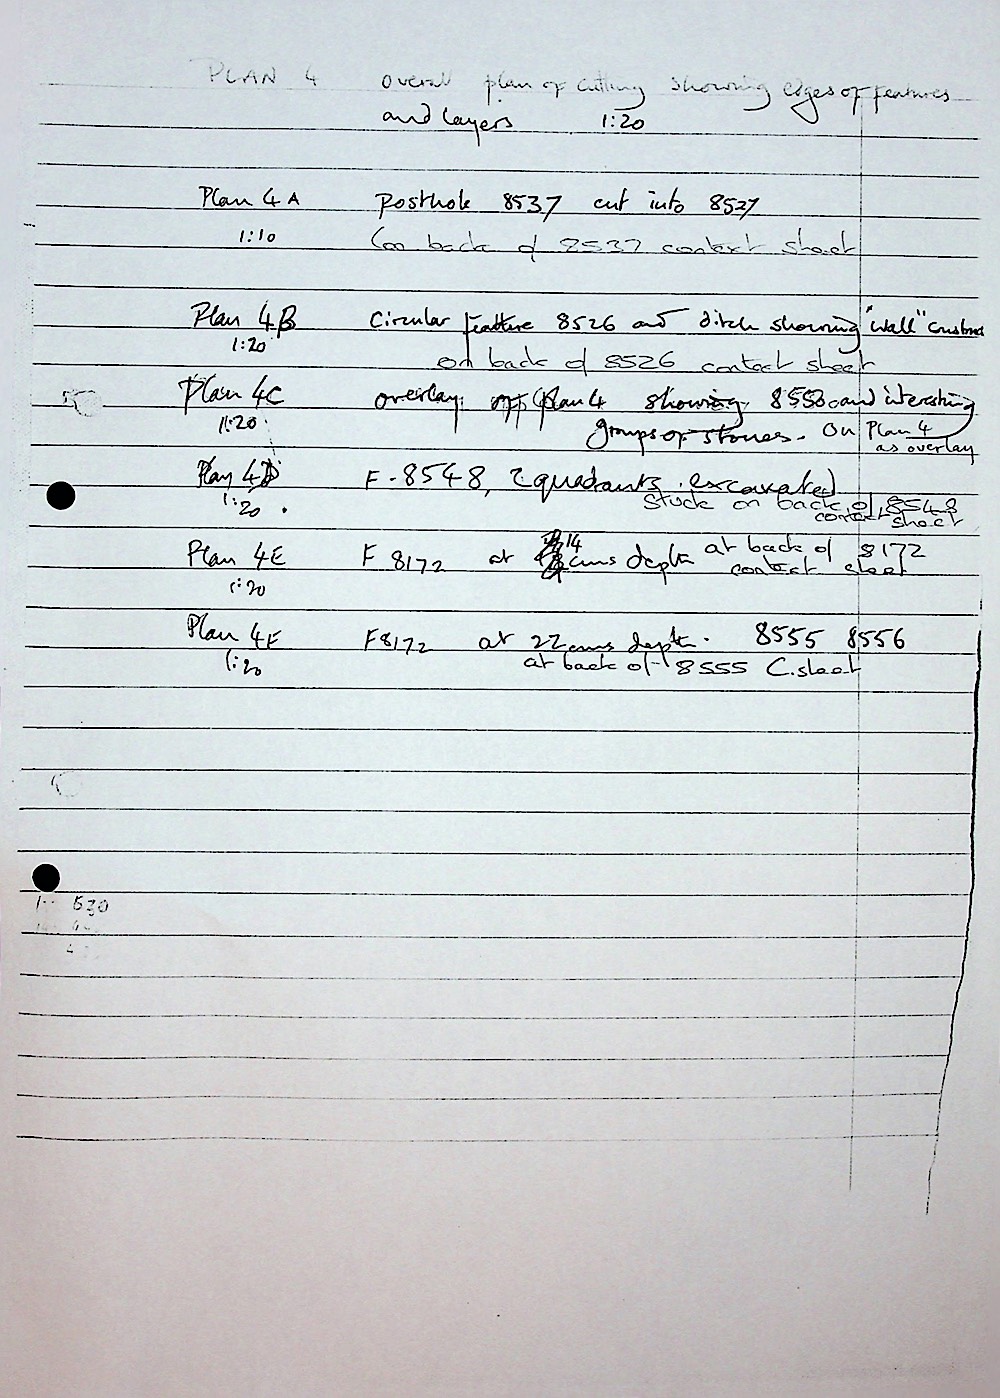 PLAN 4 overall plan of cutting showing edges of features
and layers 1:20
Plan 4A posthole 8537 cut into 8527
1:10 (on back of 8537 context sheet
Plan 4B Circular feature 8526 and ditch showing "wall"
1:20 on back of 8526 context sheet
Plan 4C overlay off plan 4 showing 8550 and interesting
1:20 groups of stones. On Plan 4
as overlay
Plan 4D F-8548, 2 quadrants excavated
1:20 stuck on back of 8548
context sheet
Plan 4E F 8172 at 14 cms depth at back of 8172
1:20 context sheet
Plan 4F F8172 at 22cms depth. 8555 8556
1:20 at back of 8555 C.sheet
530